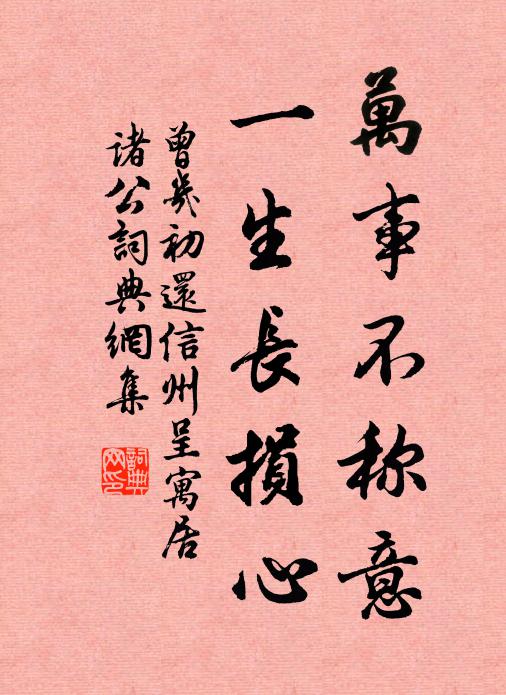 萬事不称意
一生長損心
曾幾初還信州呈寓居
諸公詞典網集
詞典网印